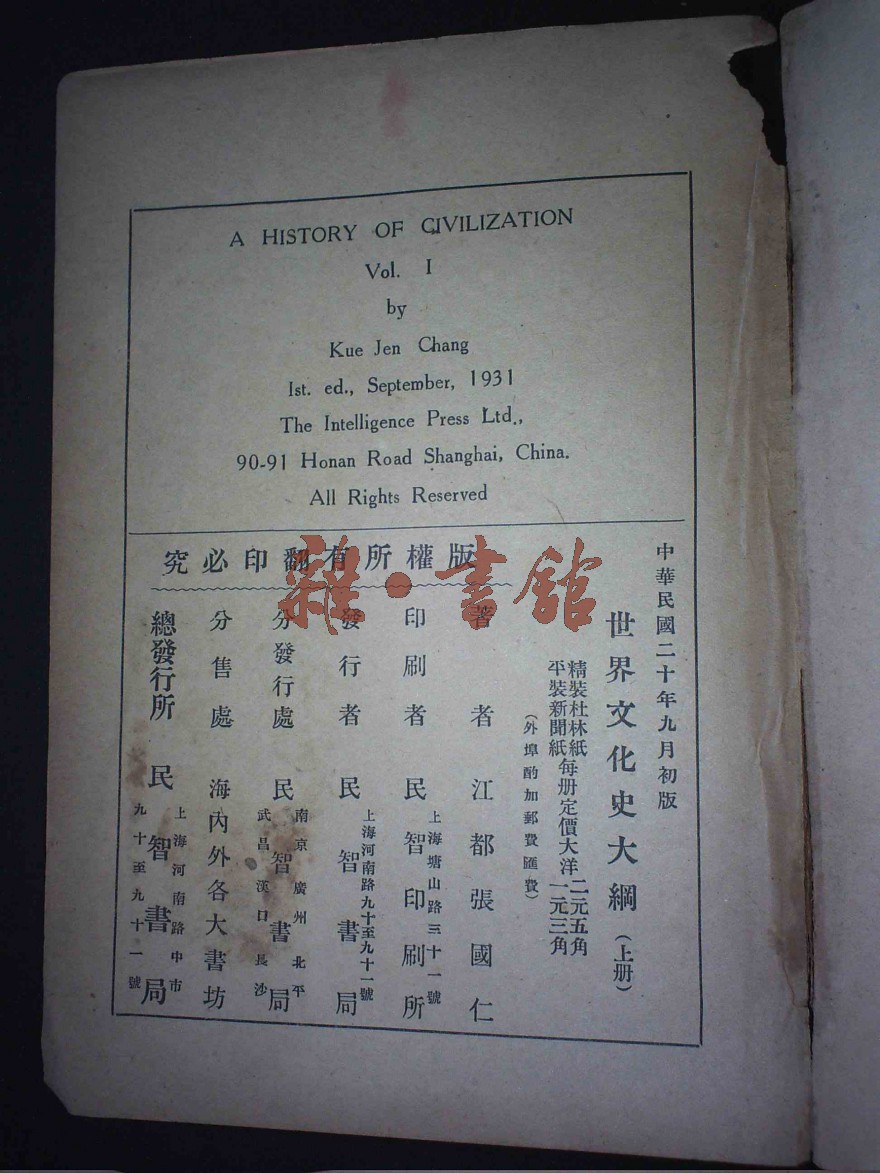 A HISTORY OF CIVILIZATION
Vol. I
by
Kue Jen Chang
Ist. ed., September, 1931
The Intelligence Press Ltd.,
90-91 Honan Road Shanghai, China.
All Rights Reserved
中華民國二十年九月初版
世界文化史大綱（上册）
精裝杜林紙
平裝新聞紙
每册定價大洋
二元五角
一元三角
（外埠酌加郵費匯費）
版權所有翻印必究
著者 江都張國仁
印刷者 民智印刷所
上海塘山路三十一號
發行者 民智書局
上海河南路九十至九十一號
分發行處 民智書局
南京廣州北平
武昌漢口長沙
分售處 海內外各大書坊
總發行所 民智書局
上海河南路中市
九十至九十一號
雜·書館